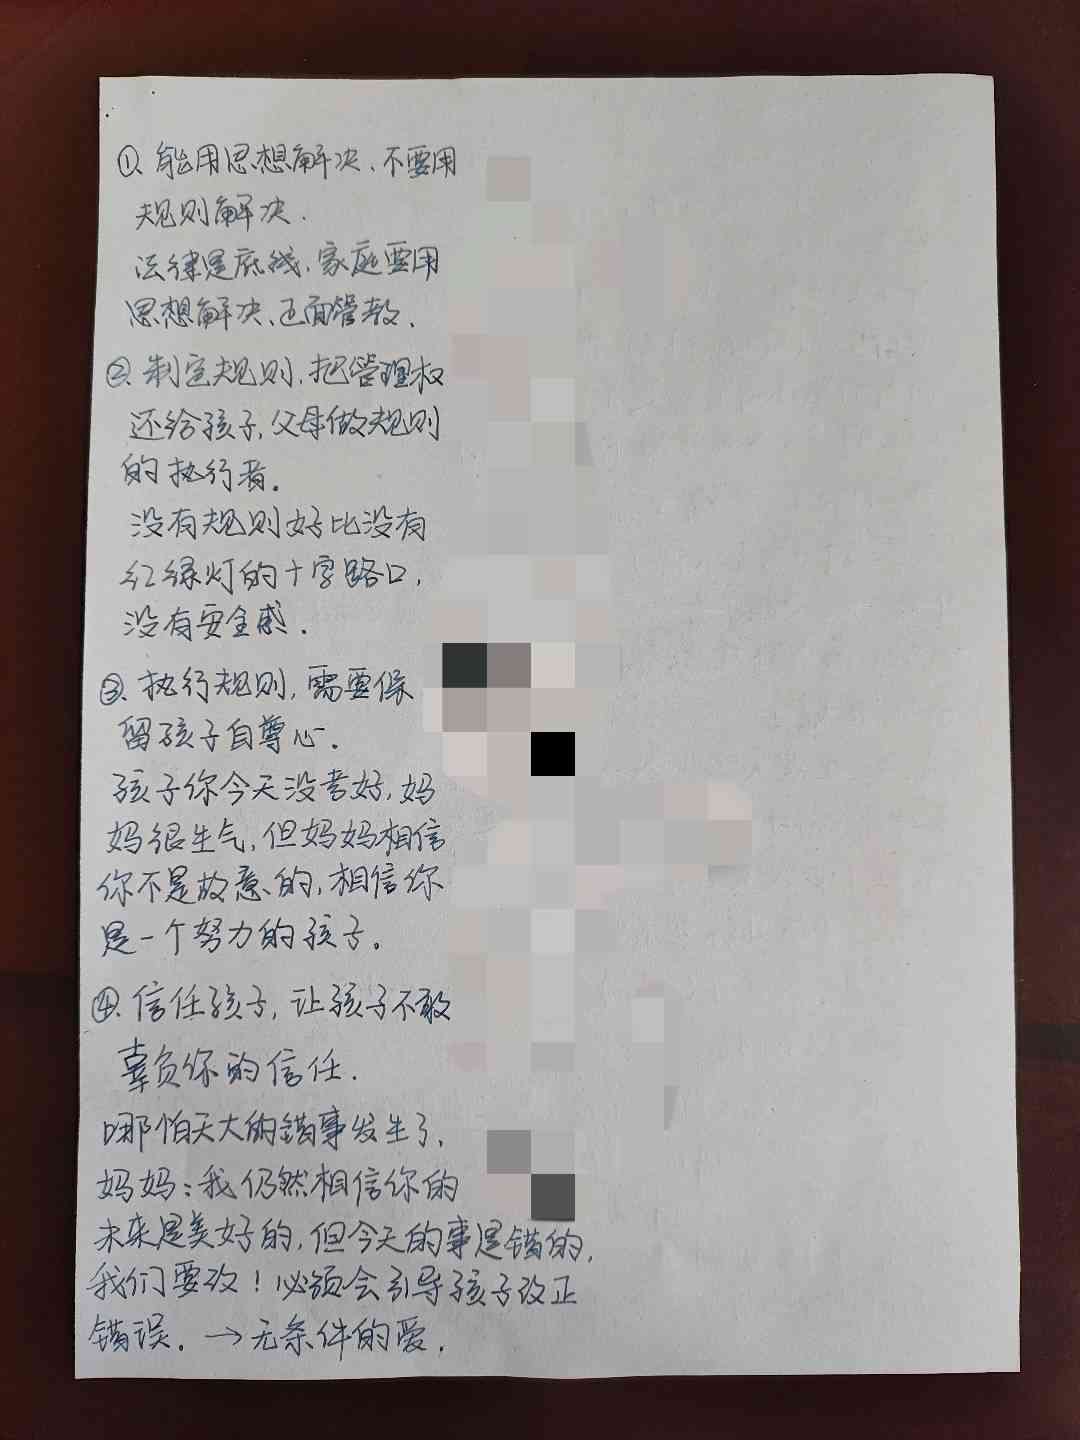 ①、能用思想解决、不要用
规则解决.
法律是底线、家庭要用
思想解决、正面管教.
②、制定规则,把管理权
还给孩子,父母做规则
的执行者.
没有规则好比没有
红绿灯的十字路口,
没有安全感.
③、执行规则,需要保
留孩子自尊心.
孩子你今天没考好,妈
妈很生气,但妈妈相信
你不是故意的,相信你
是一个努力的孩子.
④、信任孩子,让孩子不敢
辜负你的信任.
哪怕天大的错事发生了,
妈妈:我仍然相信你的
未来是美好的,但今天的事是错的,
我们要改!必须会引导孩子改正
错误. →无条件的爱.